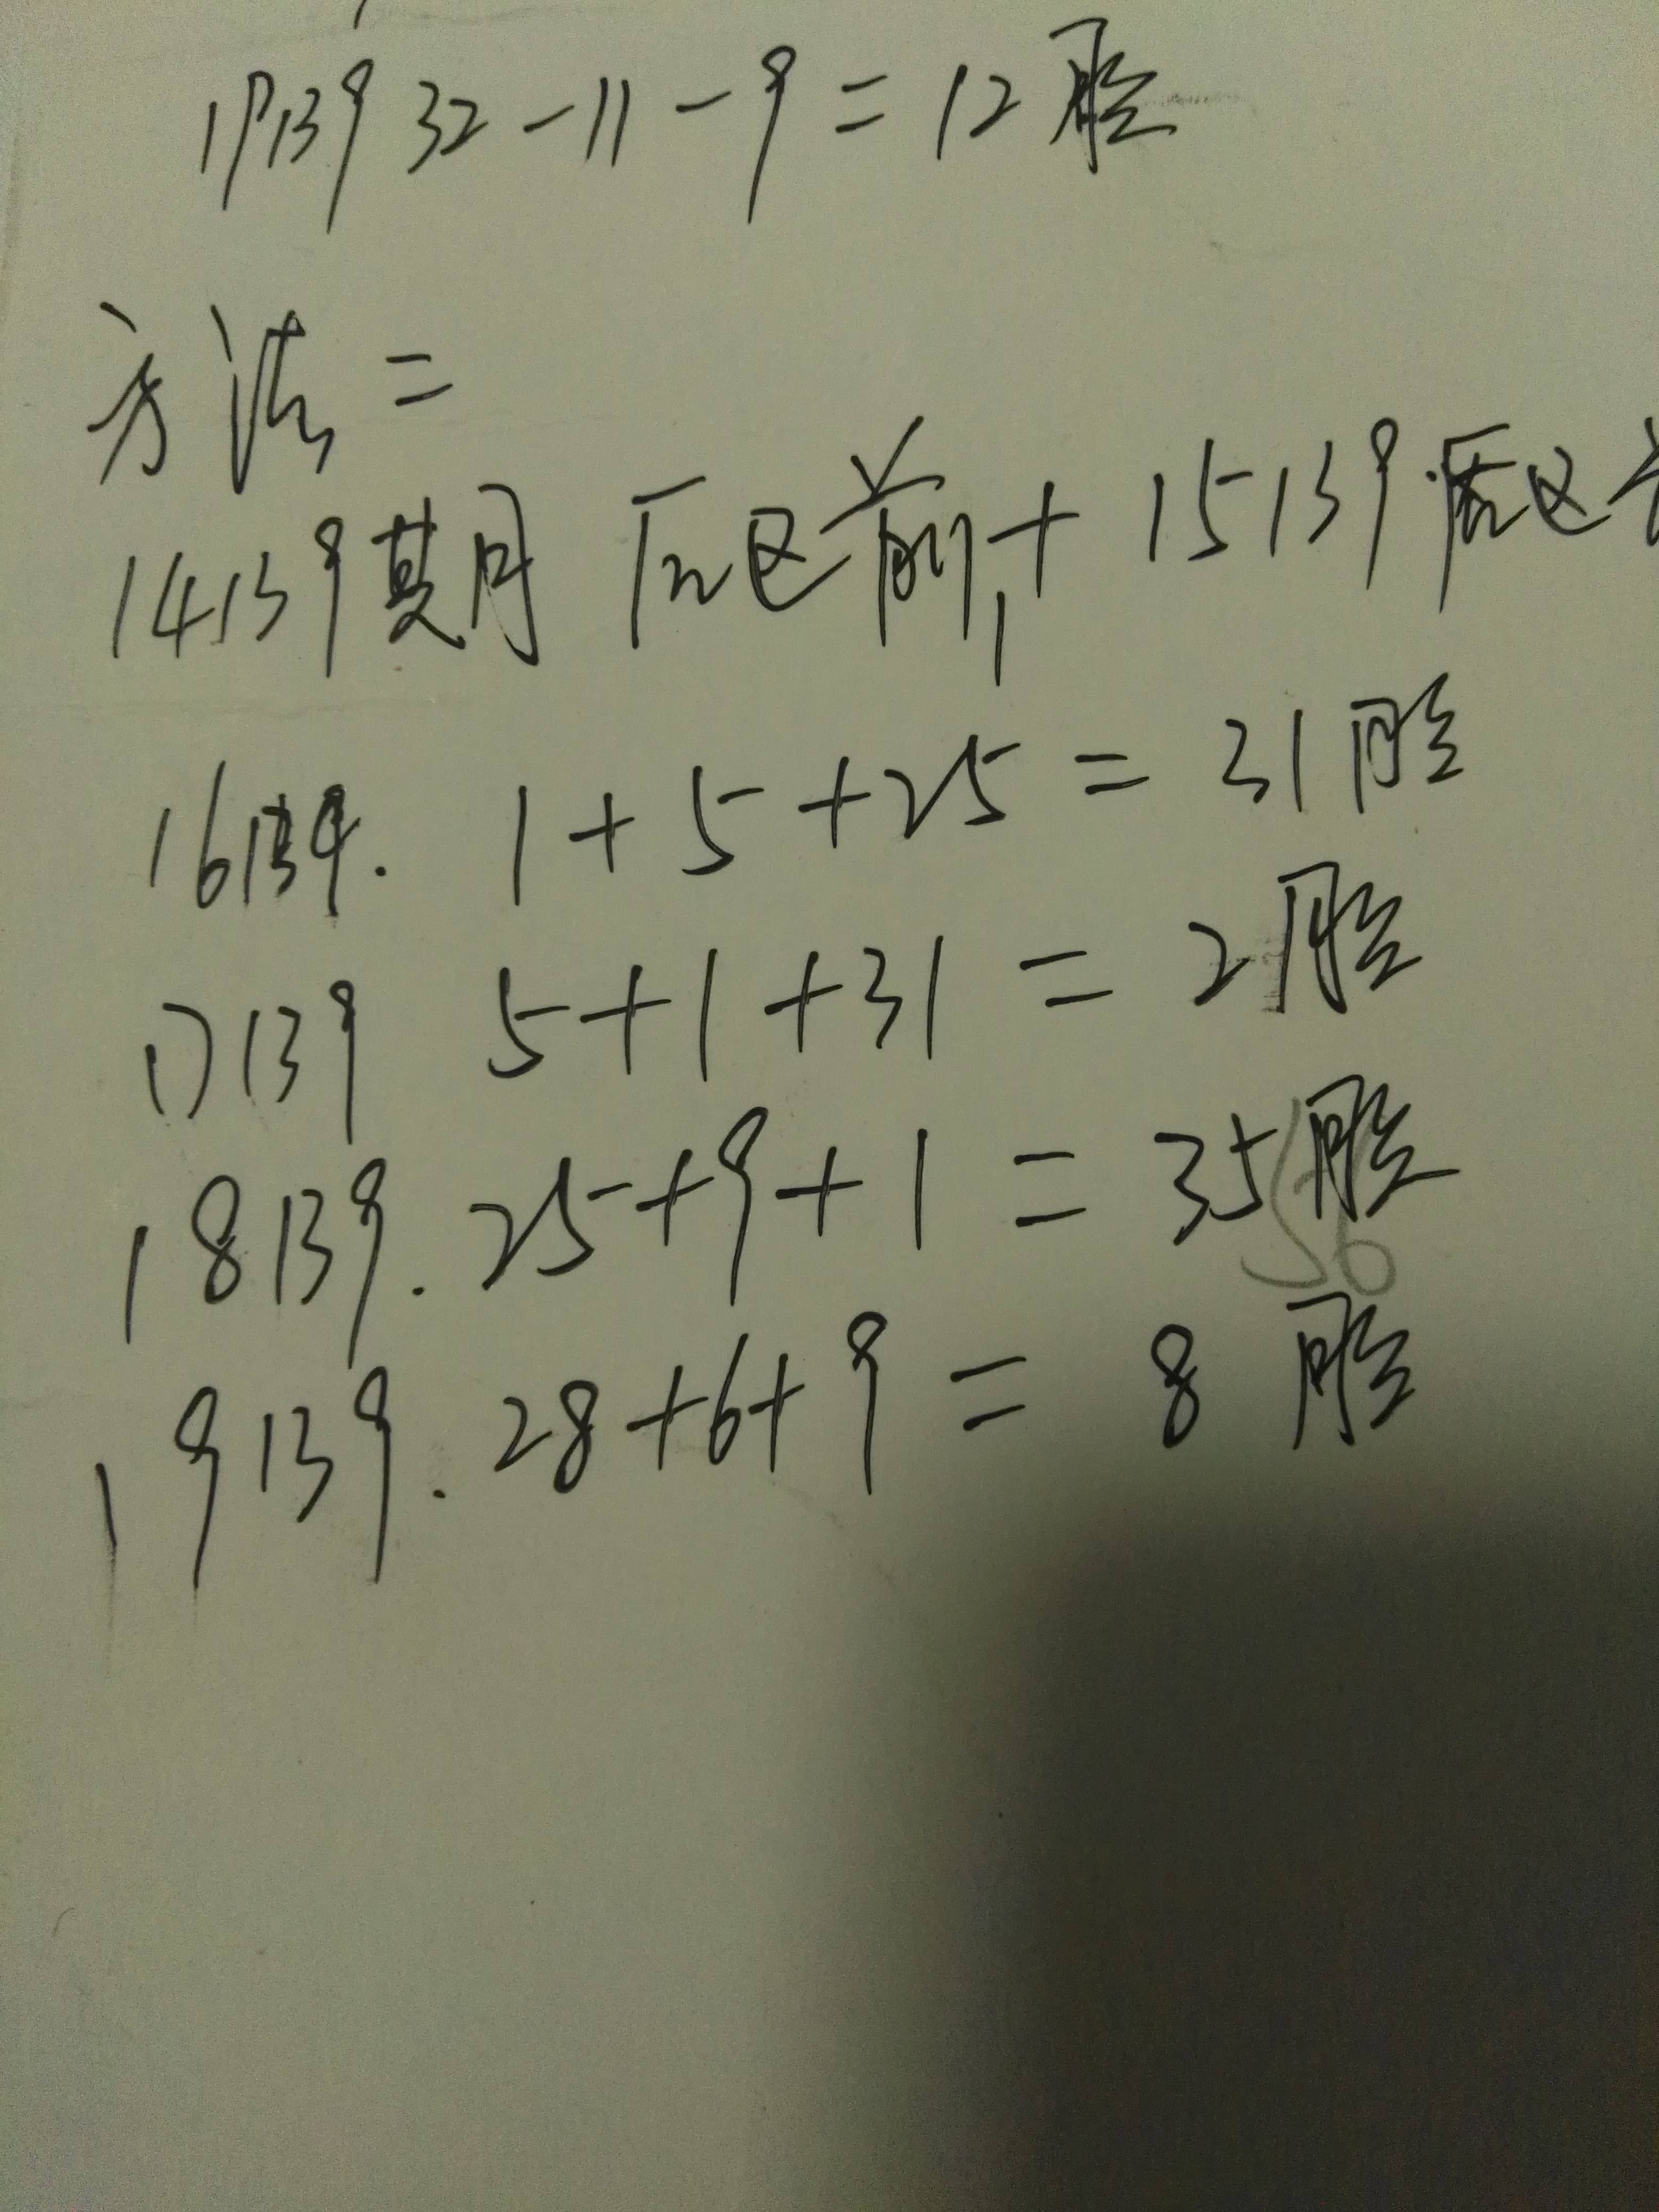 19139 32-11-9=12胆
方法二
14139期 后区前+15139.后区
16139. 1+5+25=31胆
17139 5+1+31=2胆
18139. 25+9+1=35胆
19139. 28+6+9=8胆